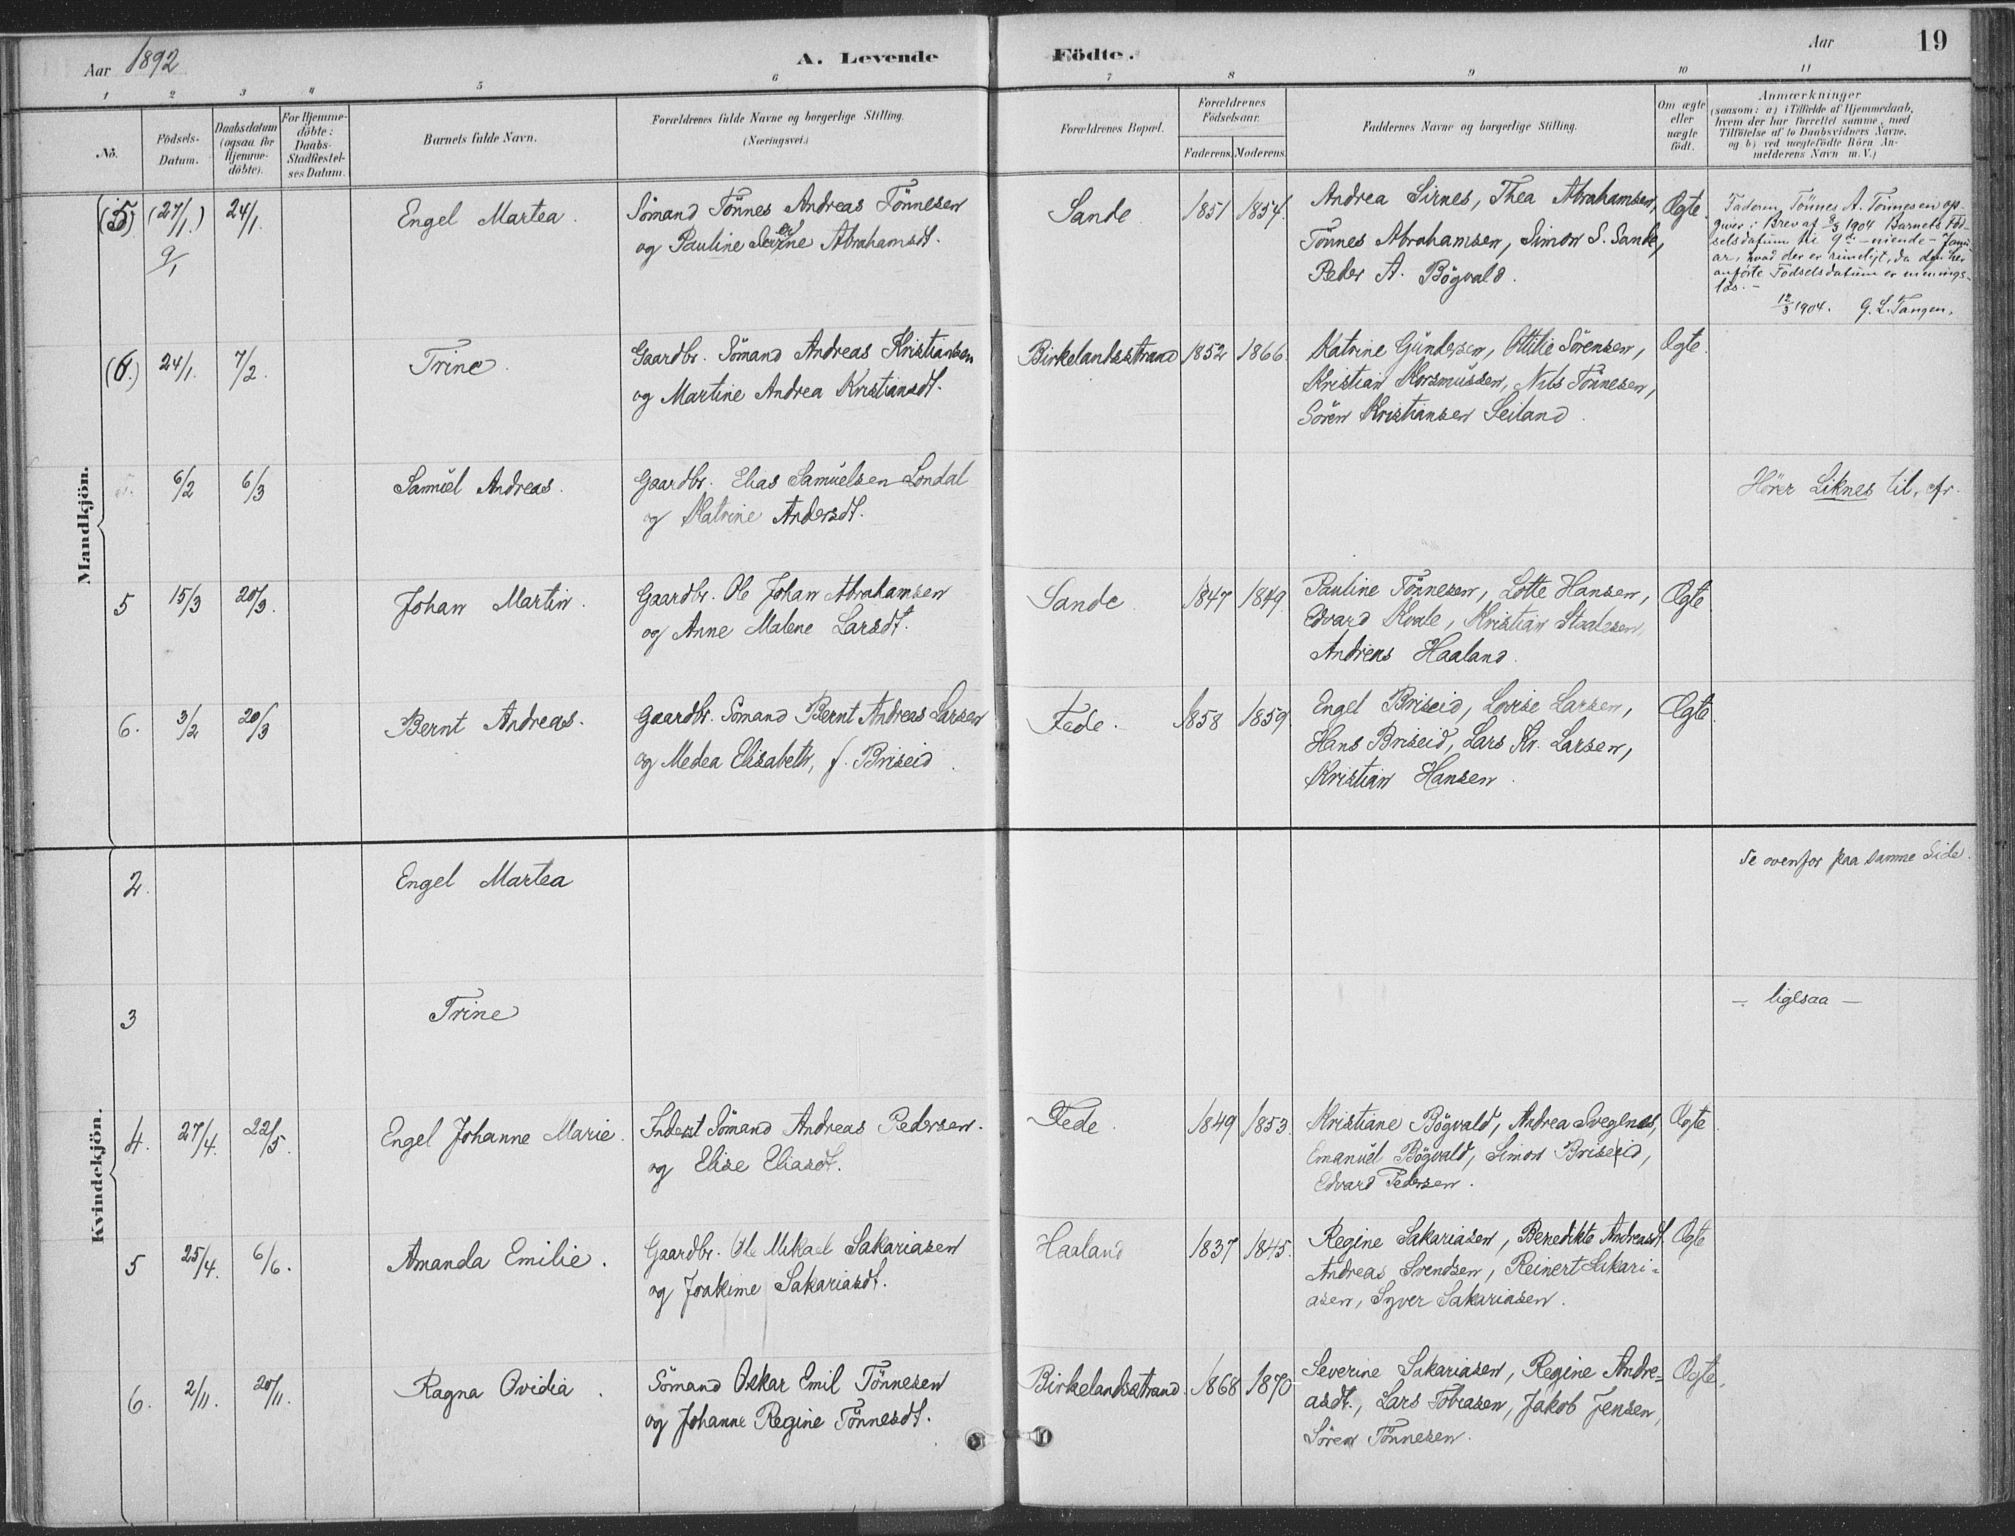 Aar 1892
A. Levende Födte.
Aar
19
1 2 3 4 5 6 7 8 9 10 11
No.
Födsels-
Datum.
Daabsdatum
(ogsaa for
Hjemme-
döbte).
For Hjemme-
döbte:
Daabs-
Stadfæstel-
ses Datum.
Barnets fulde Navn.
Forældrenes fulde Navne og borgerlige Stilling.
(Næringsvei.)
Forældrenes Bopæl.
Forældrenes
Födselsaar.
Faderens. Moderens.
Faddernes Navne og borgerlige Stilling.
Om ægte
eller
uægte
födt.
Anmærkninger
(saasom: a) i Tilfælde af Hjemmedaab,
hvem der har forrettet samme, med
Tilföielse af to Daabsvidners Navne,
og b) ved uægtefödte Börn An-
melderens Navn m. V.)
Mandkjön.
(5) (27/1.) 24/1. Engel Martea. Sömand Tönnes Andreas Tönnesen Sande 1851 1854. Andrea Sirnes, Thea Abrahamsen, Ægte.
9/1
og Pauline Abrahamsdt. Tönnes Abrahamsen, Simon S. Sande,
Peder A. Bögvald.
Faderen, Tönnes A. Tönnesen op-
giver i Brev af 9/3 1904 Barnets Föd-
selsdatum til 9de - niende - Janu-
ar, hvad der er rimeligt, da den her
anförte Födselsdatum er menings-
lös. -
12/3 1904. G. L. Tangen.
(6.) 24/1. 7/2. Trine. Gaardbr. Sömand Andreas Kristiansen Birkelandsstrand 1852 1866. Katrine Gundersen, Ottilie Sörensen, Ægte.
og Martine Andrea Kristiansdt. Kristian Rorsmussen, Nils Tönnesen,
Sören Kristiansen Leiland.
6/2 6/3 Samuel Andreas. Gaardbr. Elias Samuelsen Londal Hörer Liknes til,
og Katrine Andersdt.
5 15/3 20/3. Johan Martin. Gaardbr. Ole Johan Abrahamsen Sande. 1847 1849. Pauline Tönnesen, Lotte Hansen, Ægte
og Anne Malene Larsdt. Edvard Kvale, Kristian Staalesen,
Andreas Haaland.
6. 3/2 20/3 Bernt Andreas. Gaardbr. Sömand Bernt Andreas Larsen Fede. 1858 1859 Engel Briseid, Lovise Larsen, Ægte.
og Medea Elisabeth, f. Briseid. Hans Briseid, Lars Kr. Larsen,
Kristian Hansen.
Kvindekjön.
2. Engel Martea Se ovenfor paa samme Side.
3 Trine - ligesaa -
4. 27/4. 22/5. Engel Johanne Marie. Inderst Sömand Andreas Pedersen. Fede. 1849 1853. Kristiane Bögvald, Andrea Svegenes, Ægte
og Elise Eliasdt. Emanuel Bögvald, Simon Briseid,
Edvard Pedersen.
5 25/4. 6/6. Amanda Emilie. Gaardbr. Ole Mikael Sakariasen Haaland 1837 1845. Regine Sakariasen, Benedikte Andreasdt. Ægte
og Joakime Sakariasdt. Andreas Svendsen, Reinert Sakari-
asen, Syver Sakariasen.
6. 2/11. 20/11. Ragna Ovidia. Sömand Oskar Emil Tönnesen Birkelandsstrand. 1868 1870 Severine Sakariasen, Regine Andre- Ægte.
og Johanne Regine Tönnesdt. asdt., Lars Tobiasen, Jakob Jensen,
Sören Tönnesen.